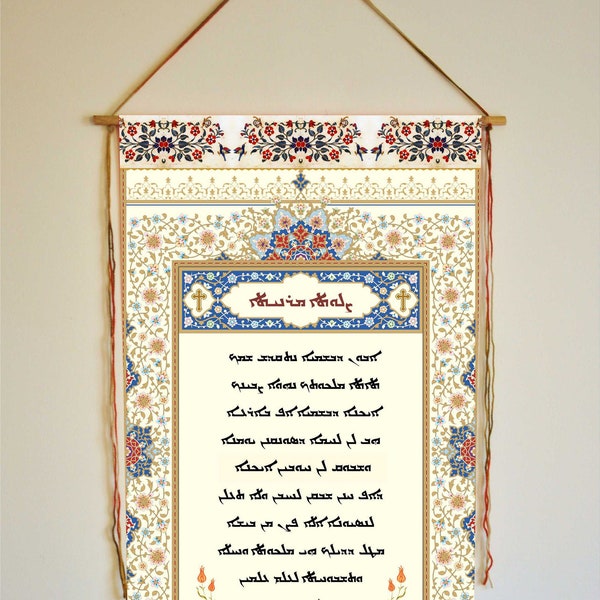 ܨܠܘܬܐ ܡܪܢܝܬܐ
ܐܒܘܢ ܕܒܫܡܝܐ ܢܬܩܕܫ ܫܡܟ
ܬܐܬܐ ܡܠܟܘܬܟ ܢܗܘܐ ܨܒܝܢܟ
ܐܝܟܢܐ ܕܒܫܡܝܐ ܐܦ ܒܐܪܥܐ
ܗܒ ܠܢ ܠܚܡܐ ܕܣܘܢܩܢܢ ܝܘܡܢܐ
ܘܫܒܘܩ ܠܢ ܚܘܒܝܢ ܐܝܟܢܐ
ܕܐܦ ܚܢܢ ܫܒܩܢ ܠܚܝܒܝܢ ܘܠܐ ܬܥܠܢ
ܠܢܣܝܘܢܐ ܐܠܐ ܦܨܢ ܡܢ ܒܝܫܐ
ܡܛܠ ܕܕܝܠܟ ܗܝ ܡܠܟܘܬܐ ܘܚܝܠܐ
ܘܬܫܒܘܚܬܐ ܠܥܠܡ ܥܠܡܝܢ